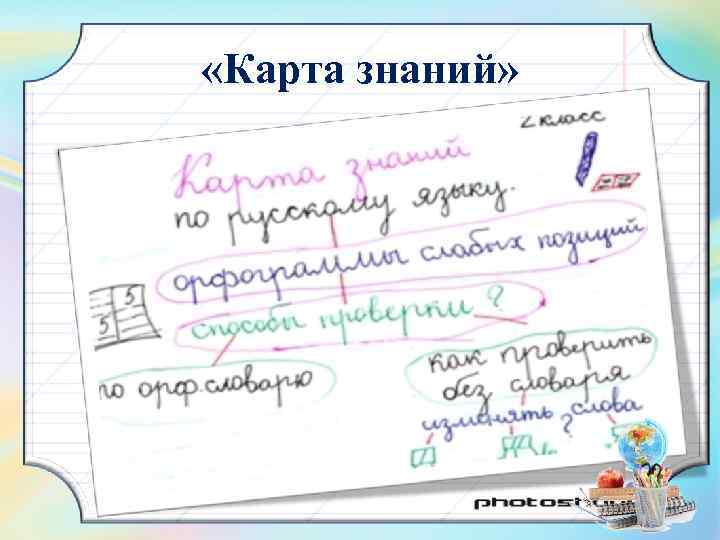 «Карта знаний»
2 класс
Карта знаний
по русскому языку.
орфограммы слабых позиций
5
5
способы проверки?
по орф. словарю
как проверить
без словаря
изменять слова
?